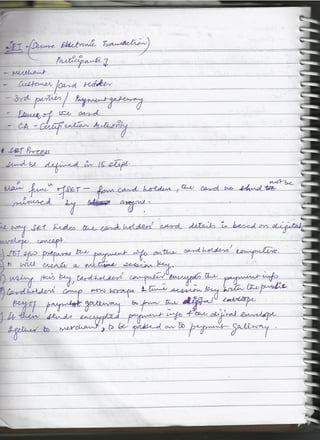 SET - (Secure Electronic Transaction)
Participants }
- Merchant
- Customer / Card Holder
- 3rd parties / Payment gateway
- Issuer of the card
- CA - Certification Authority
SET Process
and be defined in 15 steps.
Main funcⁿ of SET - from card holders, the card no shud not be
misused by anyone.
The way SET hides the cardholders' card details is based on digital
envelope concept
SET s/w prepares the payment info on the cardholders' computer.
It will create a onetime session key
Using this key, cardholders' computer encrypts the payment info
Cardholders' comp now wraps 1 time session key with the public
key of payment gateway to form the digital envelope
It then sends encrypted payment info & the digital envelope
together to merchant, to be passed on to payment gateway.